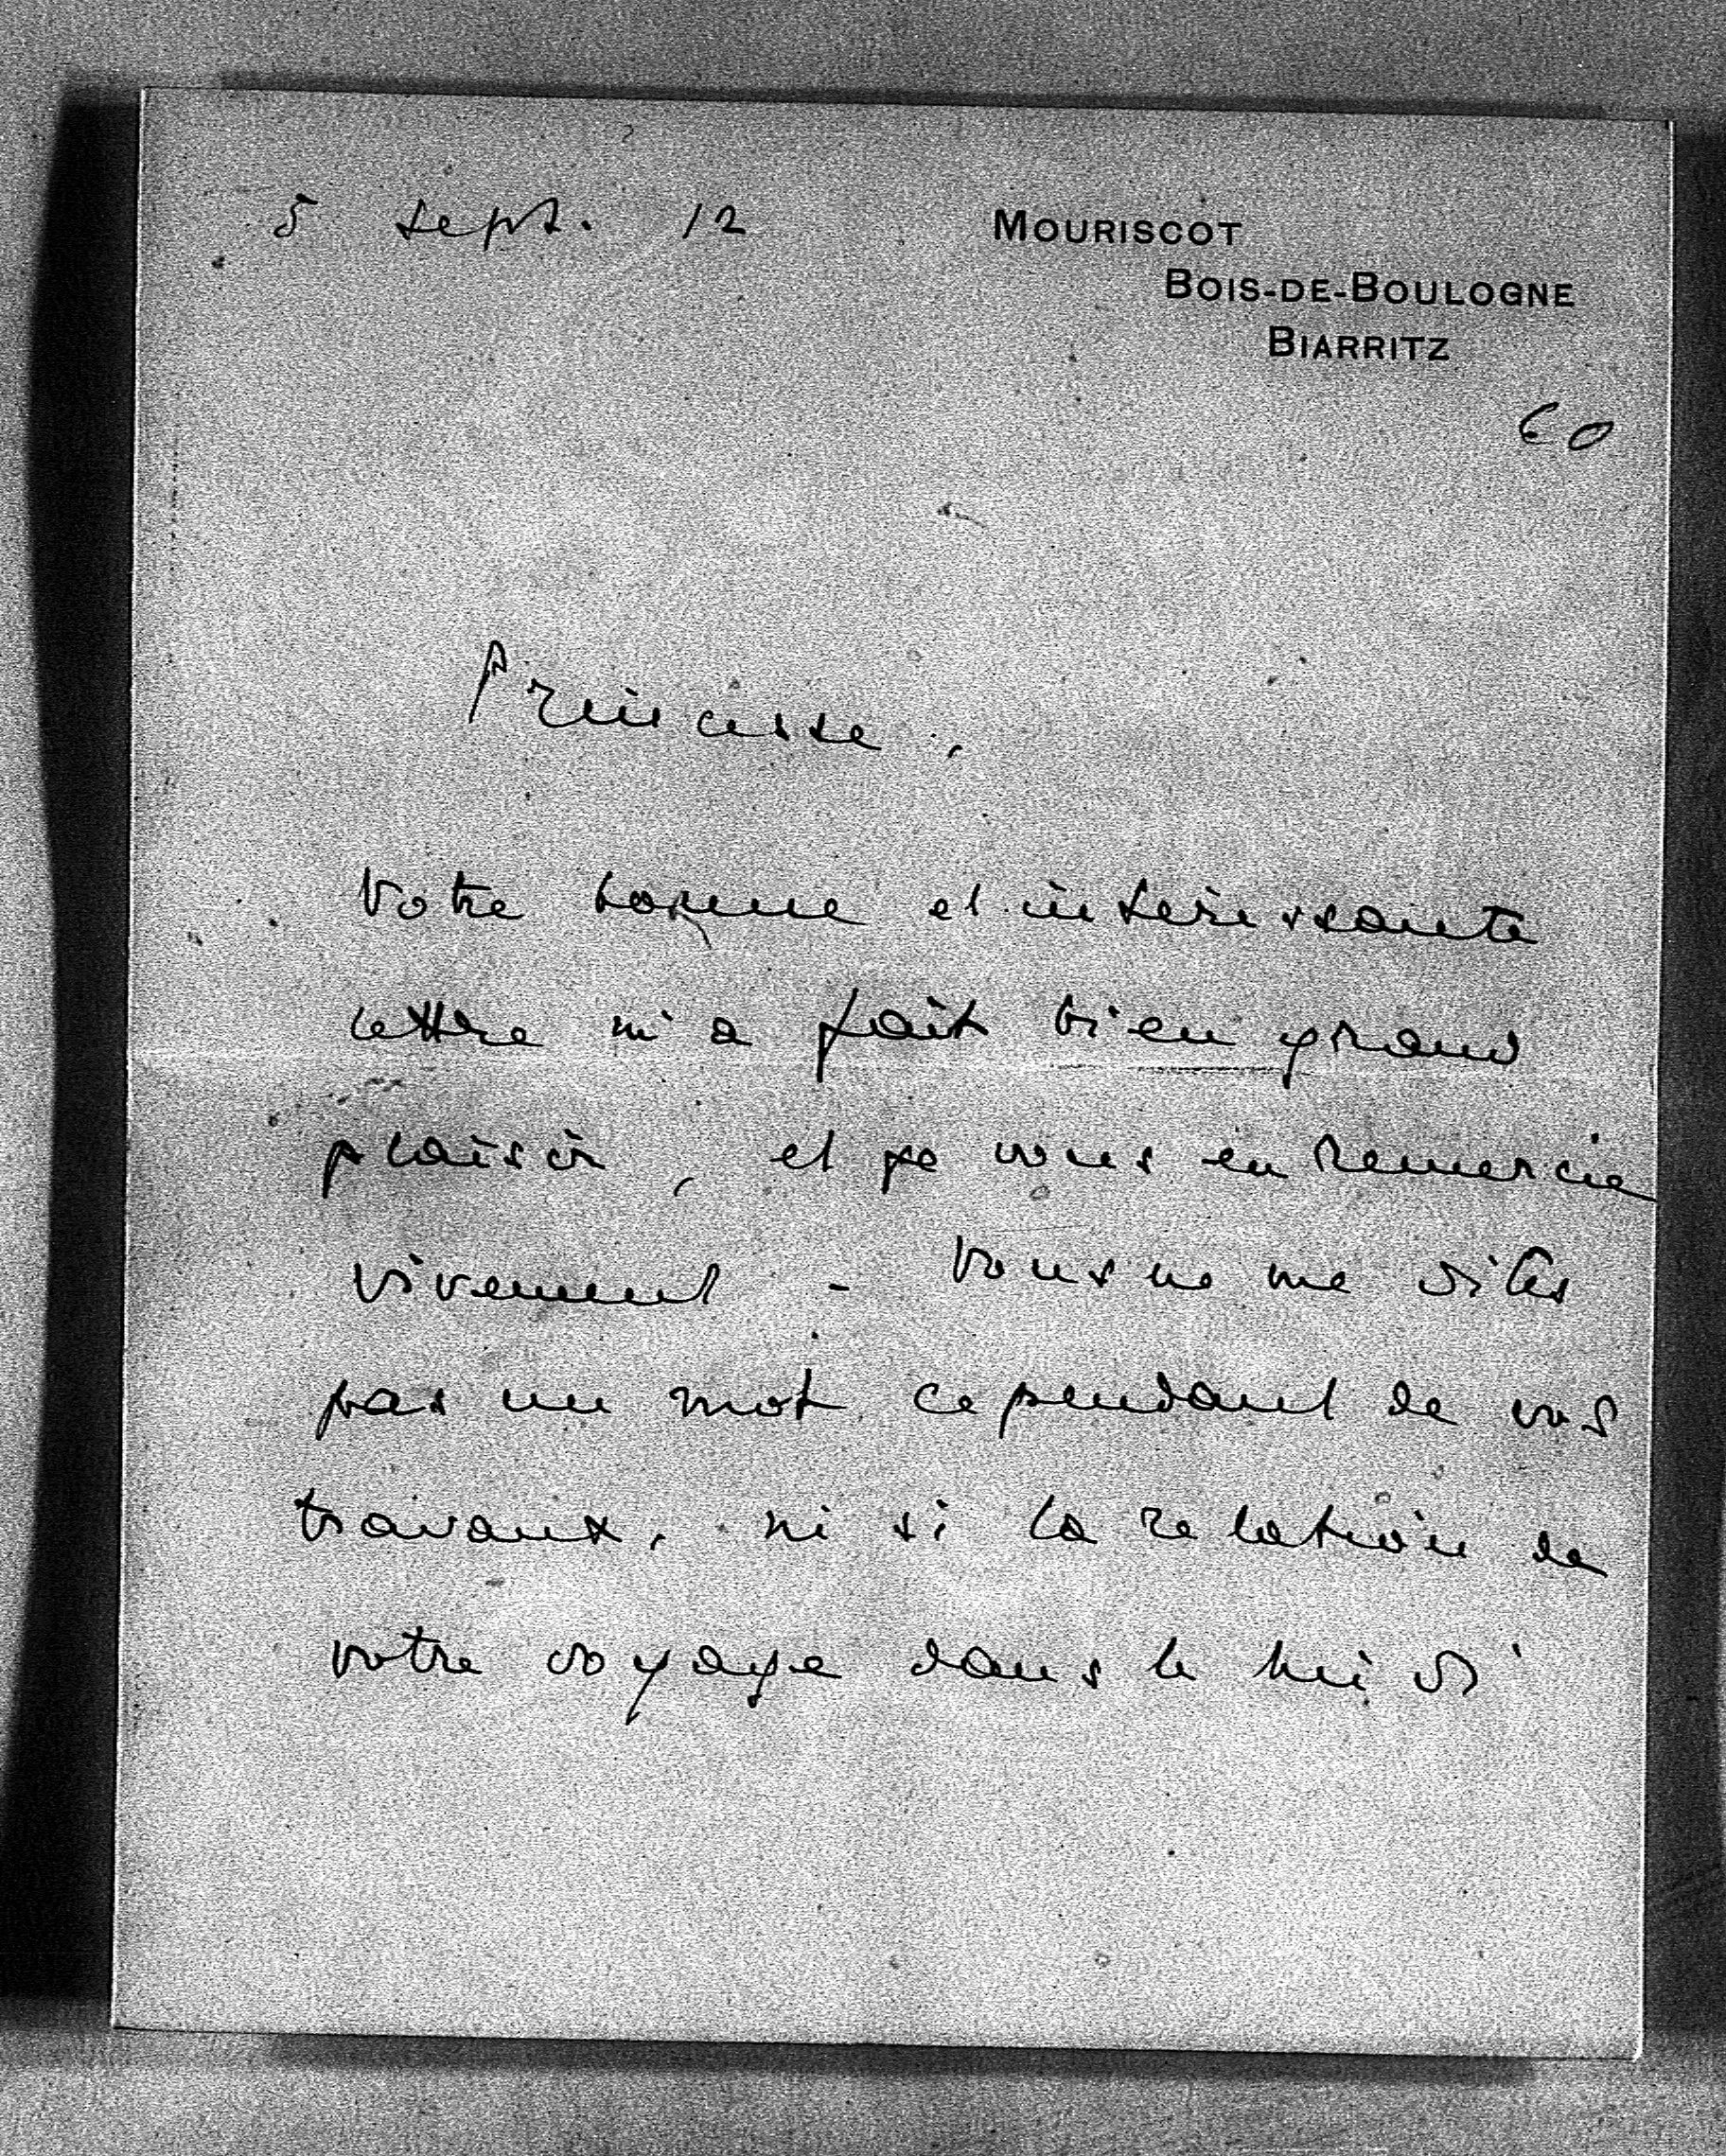 5 sept. 12
MOURISCOT
BOIS-DE-BOULOGNE
BIARRITZ
60
Princesse,
Votre bonne et intéressante
lettre m'a fait bien grand
plaisir, et je vous en remercie
vivement - Vous ne me dites
pas un mot cependant de vos
travaux, ni si la relation de
votre voyage dans le midi